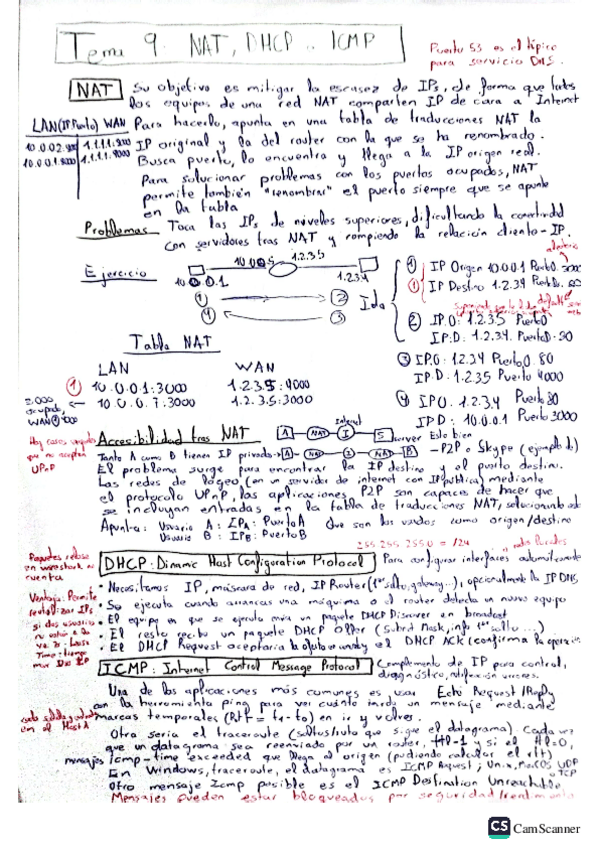 Tema 9: NAT, DHCP.. ICMP
Puerto 53 es el típico
para servicio DNS.
NAT Su objetivo es mitigar la escasez de IPs, de forma que todos
los equipos de una red NAT comparten IP de cara a Internet
LAN (IP:Puerto) WAN
Para hacerlo, apunta en una tabla de traducciones NAT la
IP original y la del router con la que se ha renombrado.
Busca puerto, lo encuentra y llega a la IP origen real.
Para solucionar problemas con los puertos ocupados, NAT
permite también "renombrar" el puerto siempre que se apunte
en la tabla
Problemas Toca las IPs de niveles superiores, dificultando la conectividad
con servidores tras NAT y rompiendo la relación cliente-IP.
Ejercicio
10.0.0.1
1.2.3.5
1.2.3.4
Ida
1 IP Origen 10.0.0.1 Puerto 3000
1 IP Destino 1.2.3.4 Puerto 80
2 IP.O: 1.2.3.5 Puerto
IP.D: 1.2.3.4. Puerto D. 80
3 IP.O: 1.2.3.4 Puerto. 80
IP.D: 1.2.3.5 Puerto 4000
4 IPO. 1.2.3.4 Puerto 80
IPD: 10.0.0.1 Puerto 3000
Tabla NAT
LAN WAN
1 10.0.0.1:3000 1.2.3.5:4000
10.0.0.7:3000 1.2.3.5:3000
Accesibilidad tras NAT
A NAT I S server Esto bien
Internet
A NAT I NAT B -P2P o Skype (ejemplo)
UPnP
Tanto A como B tienen IP privada
El problema surge para encontrar la IP destino y el puerto destino.
Las redes de logeo (en un servidor de internet con IP publica) mediante
el protocolo UPnP, las aplicaciones P2P son capaces de hacer que
se incluyan entradas en la tabla de traducciones NAT, seleccionando
Apunta: Usuario A: IPA: Puerto A que son los usados como origen/destino
Usuario B: IPB: Puerto B
255.255.255.0 = /24
DHCP: Dinamic Host Configuration Protocol Para configurar interfaces automáticamente
· Necesitamos IP, máscara de red, IP Router (1er salto, gateway...), opcionalmente la IP DNS
· Se ejecuta cuando arrancas una máquina o el router detecta un nuevo equipo
· El equipo en que se ejecuta envia un paquete DHCP Discover en broadcast
· El resto recibe un paquete DHCP Offer (Subnet Mask, info 1er salto...)
· El DHCP Request aceptaría la oferta y el DHCP ACK (confirma la operación
ICMP: Internet Control Message Protocol Complemento de IP para control,
diagnóstico, notificación errores.
Una de las aplicaciones más comunes es usar Echo Request/Reply
con la herramienta ping para ver cuánto tarda un mensaje mediante
marcas temporales (RTT = tf - to) en ir y volver.
Otra sería el traceroute (saltos/ruta que sigue el datagrama). Cada vez
que un datagrama sea reenviado por un router, ttl-1 y si el ttl=0,
mensajes icmp-time exceeded que llega al origen (pudiendo calcular el rtt)
En Windows, traceroute, el datagrama es ICMP Request; Unix, MacOS UDP
o TCP
Otro mensaje Icmp posible es el ICMP Destination Unreachable
Mensajes pueden estar bloqueados por seguridad/rendimiento
CS CamScanner